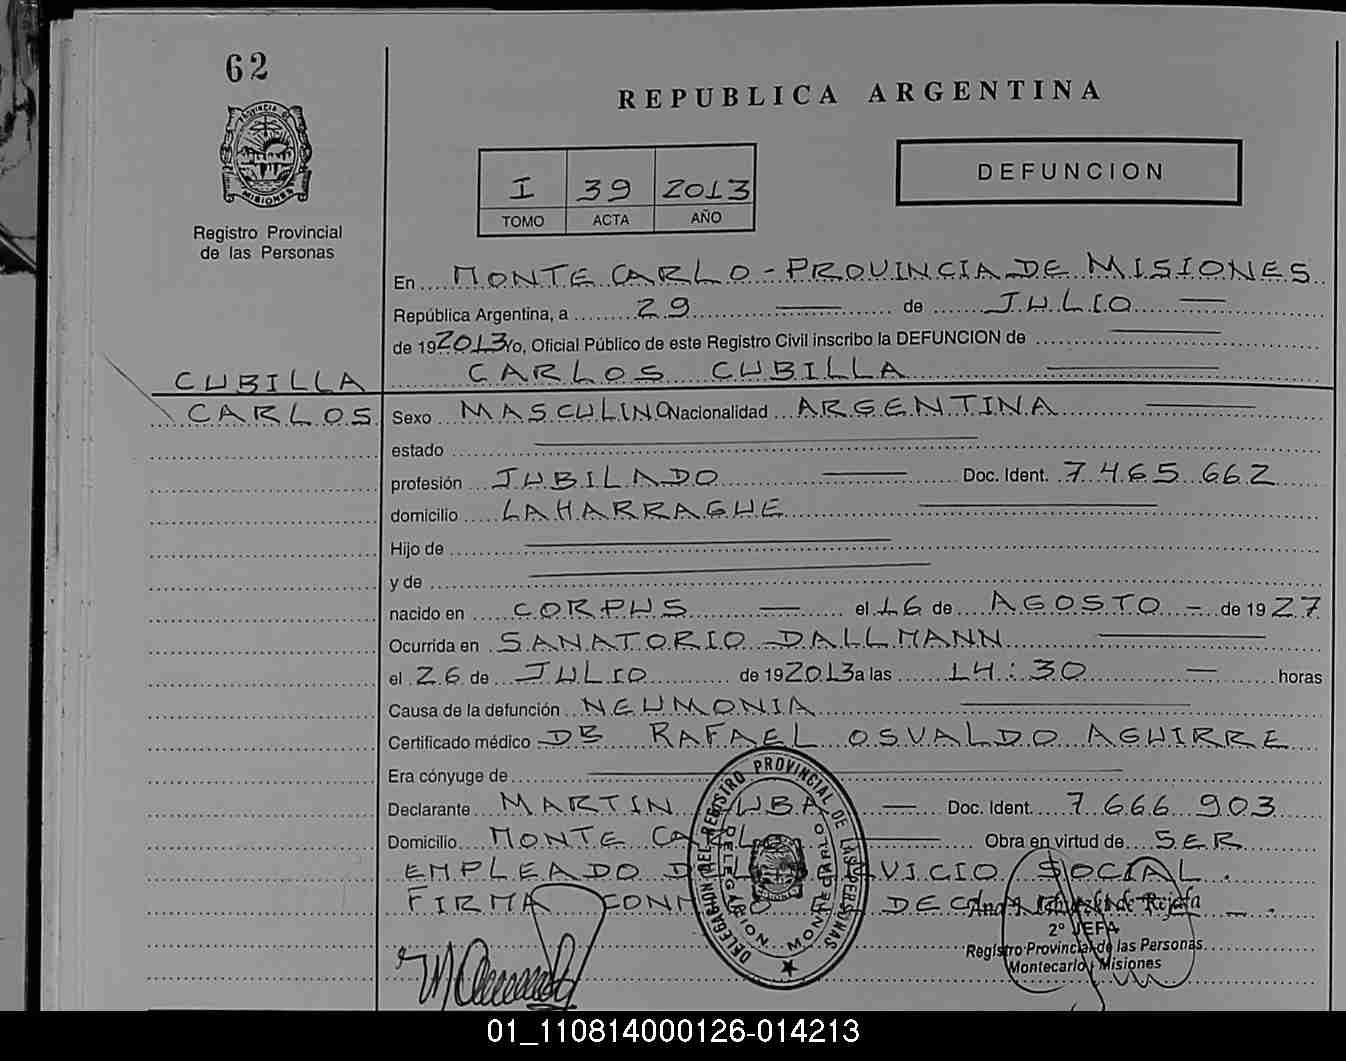 62
PROVINCIA D
MISIONES
Registro Provincial
de las Personas
REPUBLICA ARGENTINA
I 39 2013
TOMO ACTA AÑO
DEFUNCION
En MONTE CARLO - PROVINCIA DE MISIONES
República Argentina, a 29 de JULIO
de 19 2013 Yo, Oficial Público de este Registro Civil inscribo la DEFUNCION de
CUBILLA CARLOS CUBILLA
CARLOS Sexo MASCULINO Nacionalidad ARGENTINA
estado
profesión JUBILADO Doc. Ident. 7.465.662
domicilio LAHARRAGUE
Hijo de
y de
nacido en CORPUS el 16 de AGOSTO - de 19 27
Ocurrida en SANATORIO DALLMANN
el 26 de JULIO de 19 2013 a las 14:30 horas
Causa de la defunción NEUMONIA
Certificado médico DR RAFAEL OSVALDO AGUIRRE
Era cónyuge de
Declarante MARTIN Doc. Ident. 7.666.903
Domicilio MONTE Obra en virtud de SER
EMPLEADO SOCIAL.
FIRMA
DELEGACION DEL REGISTRO PROVINCIAL DE LAS PERSONAS
DELEGACION MONTECARLO
2º JEFA
Registro Provincial de las Personas
Montecarlo - Misiones
01_110814000126-014213